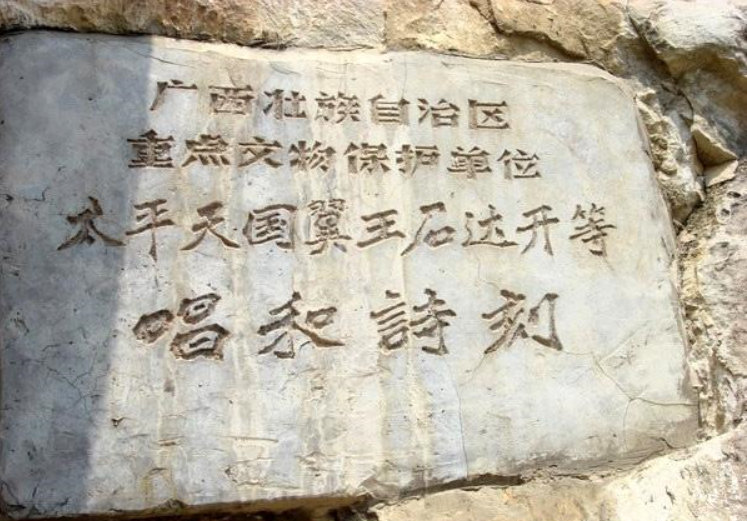 广西壮族自治区
重点文物保护单位
太平天国翼王石达开等
唱和詩刻